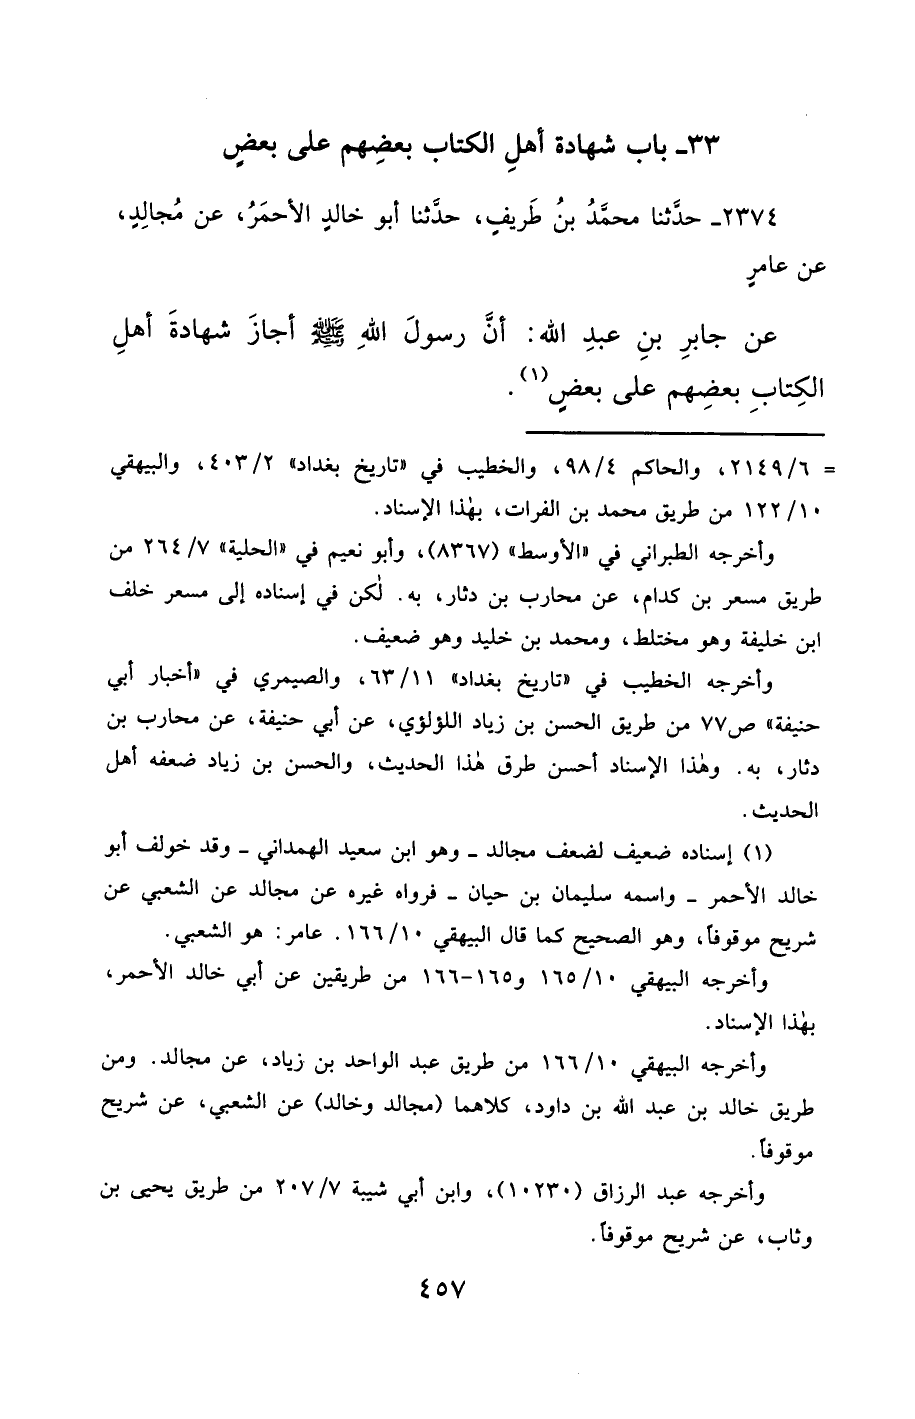 ٣٣ـ باب شهادة أهلِ الكتاب بعضِهم على بعضٍ
٢٣٧٤ـ حدَّثنا محمَّدُ بنُ طَريفٍ، حدَّثنا أبو خالدٍ الأحمَرُ، عن مُجالِدٍ،
عن عامرٍ
عن جابرِ بنِ عبدِ الله: أنَّ رسولَ اللهِ ﷺ أجازَ شهادةَ أهلِ
الكِتابِ بعضِهم على بعضٍ(١).
= ٢١٤٩/٦، والحاكم ٩٨/٤، والخطيب في «تاريخ بغداد» ٤٠٣/٢، والبيهقي
١٢٢/١٠ من طريق محمد بن الفرات، بهٰذا الإسناد.
وأخرجه الطبراني في «الأوسط» (٨٣٦٧)، وأبو نعيم في «الحلية» ٢٦٤/٧ من
طريق مسعر بن كدام، عن محارب بن دثار، به. لٰكن في إسناده إلى مسعر خلف
ابن خليفة وهو مختلط، ومحمد بن خليد وهو ضعيف.
وأخرجه الخطيب في «تاريخ بغداد» ٦٣/١١، والصيمري في «أخبار أبي
حنيفة» ص٧٧ من طريق الحسن بن زياد اللؤلؤي، عن أبي حنيفة، عن محارب بن
دثار، به. وهٰذا الإسناد أحسن طرق هٰذا الحديث، والحسن بن زياد ضعفه أهل
الحديث.
(١) إسناده ضعيف لضعف مجالد ـ وهو ابن سعيد الهمداني ـ وقد خولف أبو
خالد الأحمر ـ واسمه سليمان بن حيان ـ فرواه غيره عن مجالد عن الشعبي عن
شريح موقوفاً، وهو الصحيح كما قال البيهقي ١٦٦/١٠. عامر: هو الشعبي.
وأخرجه البيهقي ١٦٥/١٠ و١٦٥-١٦٦ من طريقين عن أبي خالد الأحمر،
بهٰذا الإسناد.
وأخرجه البيهقي ١٦٦/١٠ من طريق عبد الواحد بن زياد، عن مجالد. ومن
طريق خالد بن عبد الله بن داود، كلاهما (مجالد وخالد) عن الشعبي، عن شريح
موقوفاً.
وأخرجه عبد الرزاق (١٠٢٣٠)، وابن أبي شيبة ٢٠٧/٧ من طريق يحيى بن
وثاب، عن شريح موقوفاً.
٤٥٧